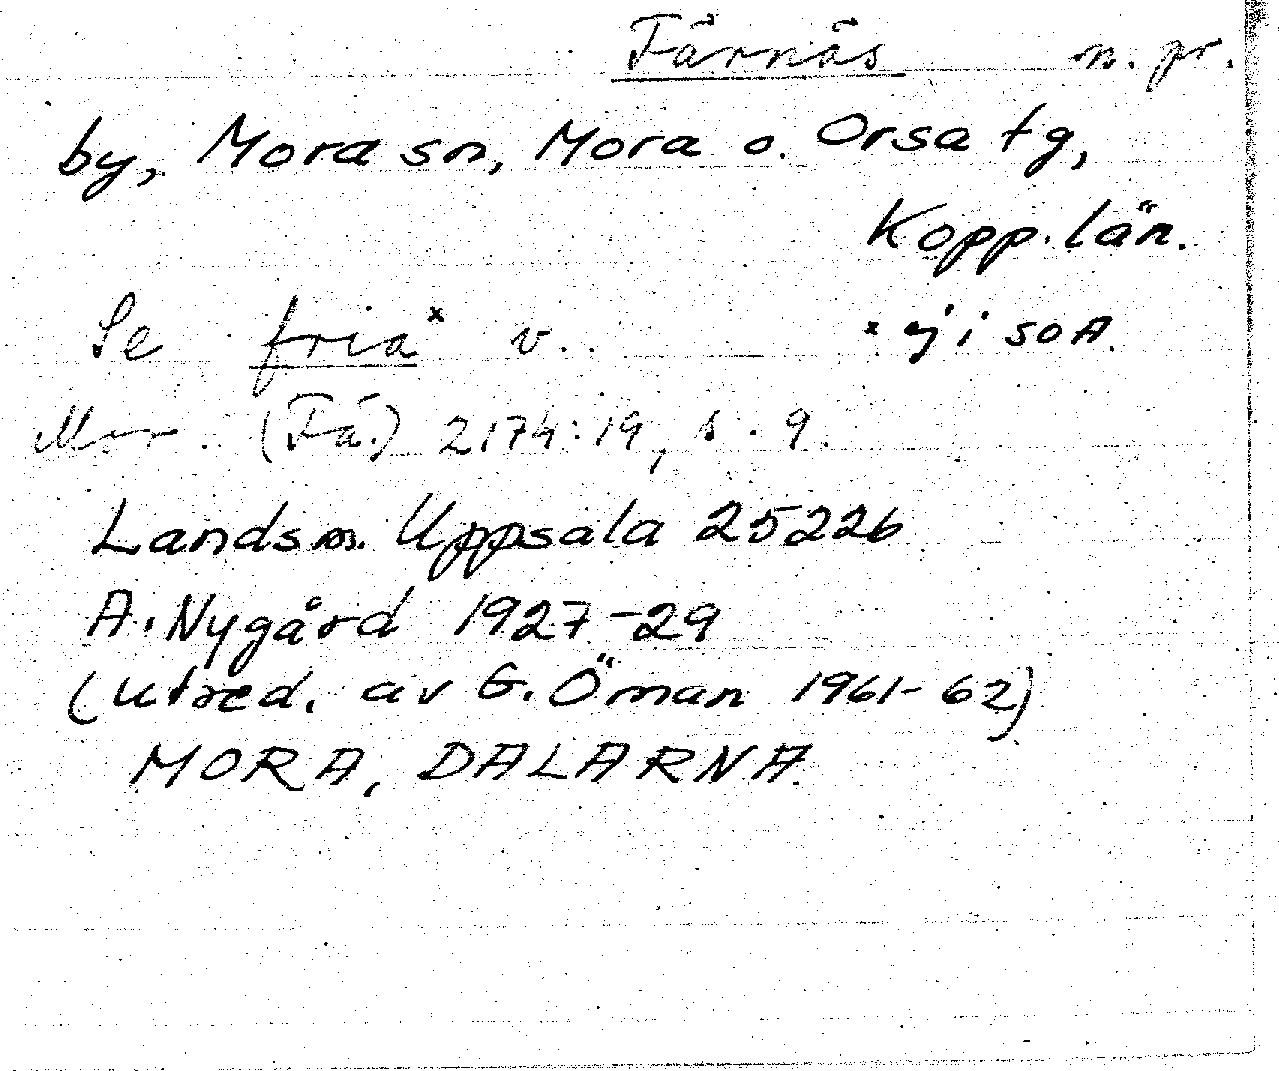 Färnäs n. pr.
by, Mora sn, Mora o. Orsa tg,
Kopp. län.
Se fria x v. x ej i SOA.
Mor. (Fä.) 2174:19, s. 9.
Landsm. Uppsala 25226
A. Nygård 1927-29
(utred. av G. Öman 1961-62)
MORA, DALARNA.